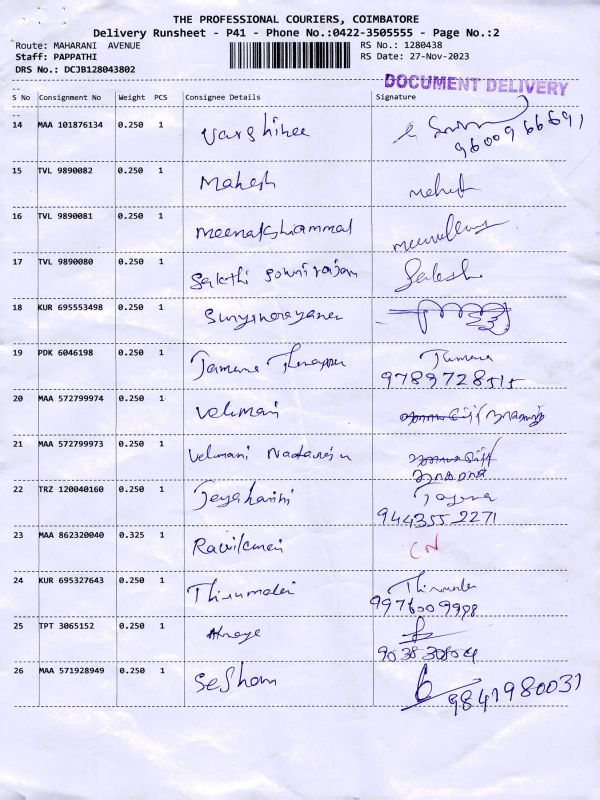 THE PROFESSIONAL COURIERS, COIMBATORE
Delivery Runsheet - P41 - Phone No.:0422-3505555 - Page No.:2
Route: MAHARANI AVENUE RS No.: 1280438
Staff: PAPPATHI RS Date: 27-Nov-2023
DRS No.: DCJB128043802
DOCUMENT DELIVERY
S No Consignment No Weight PCS Consignee Details Signature
14 MAA 101876134 0.250 1 Varshinee
9600966691
15 TVL 9890082 0.250 1 Mahesh
16 TVL 9890081 0.250 1 Meenakshiammal
17 TVL 9890080 0.250 1 Sakthi
18 KUR 695553498 0.250 1
19 PDK 6046198 0.250 1
9789728515
20 MAA 572799974 0.250 1 Velmani
21 MAA 572799973 0.250 1 Velmani Natarajn
22 TRZ 120040160 0.250 1 Jeyaharini
9443552271
23 MAA 862320040 0.325 1 Ravikumar CN
24 KUR 695327643 0.250 1 Thirumalai
9976009988
25 TPT 3065152 0.250 1
26 MAA 571928949 0.250 1 Seshan
9841980031